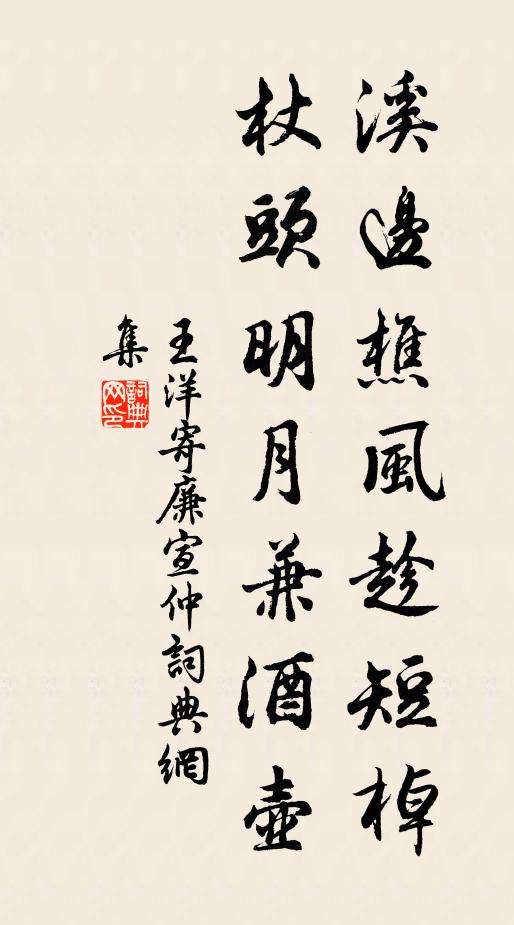 溪邊樵風趁短棹
杖頭明月兼酒壺
王洋寄廉宣仲詞典網
集
詞典
网印